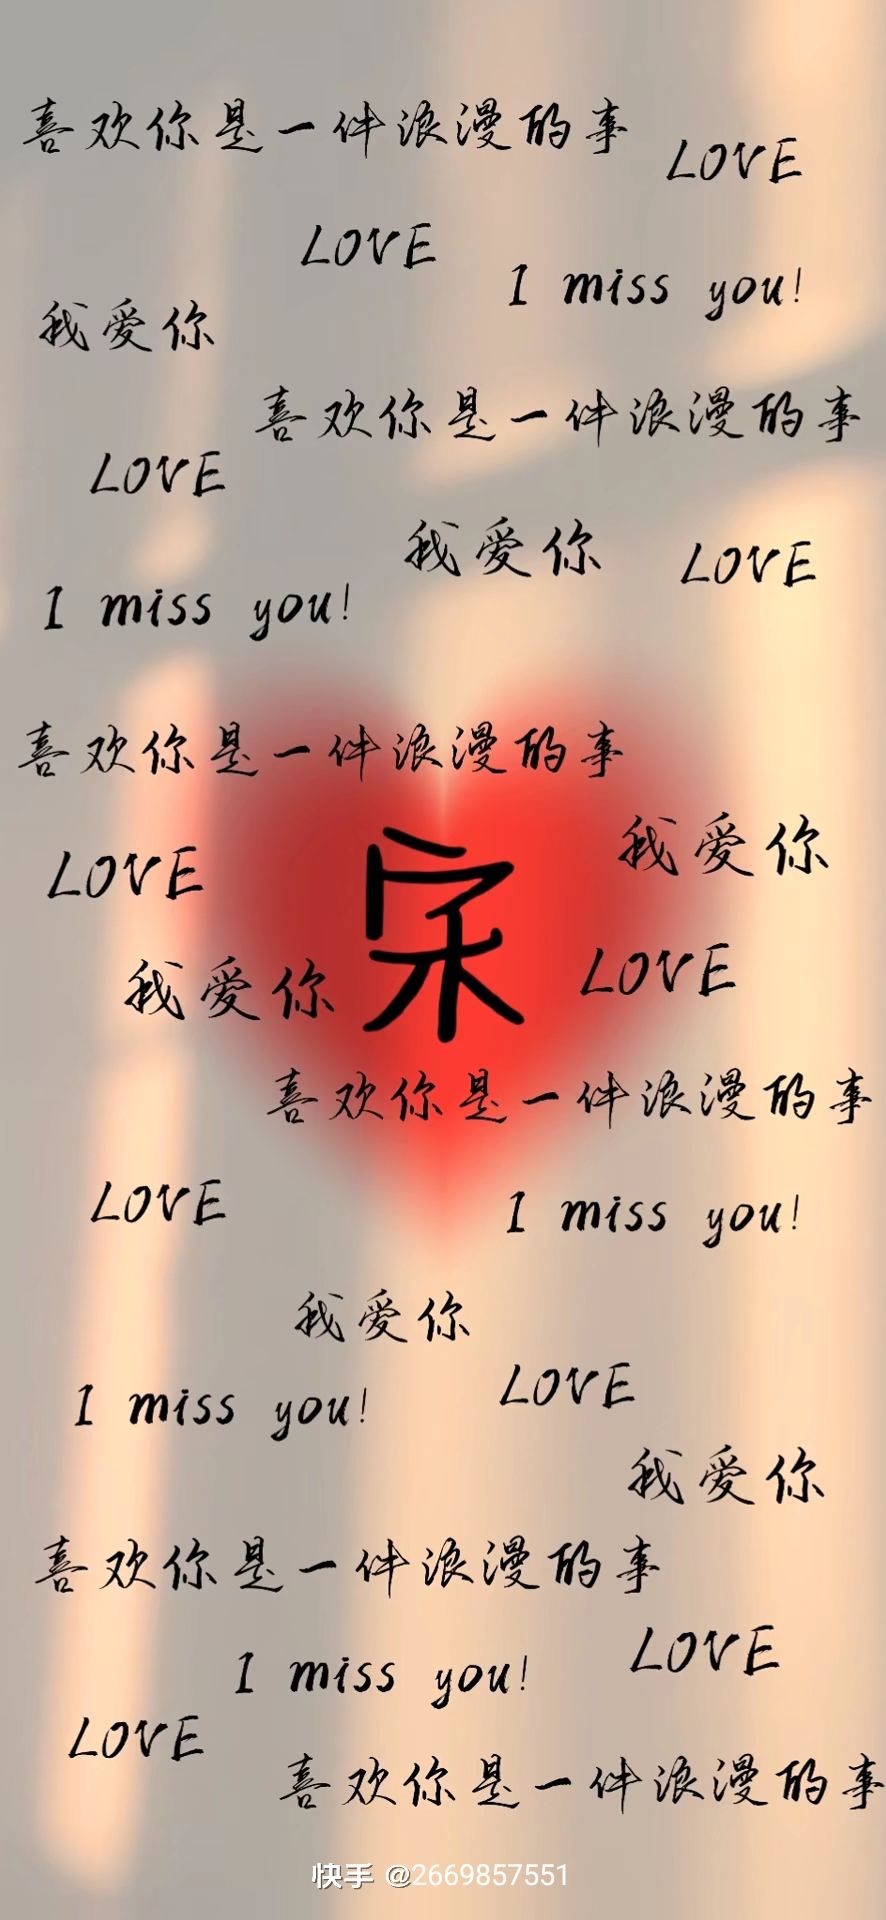 喜欢你是一件浪漫的事
LOVE
LOVE
I miss you!
我爱你
喜欢你是一件浪漫的事
LOVE
我爱你
LOVE
I miss you!
喜欢你是一件浪漫的事
我爱你
LOVE
宋
我爱你
LOVE
喜欢你是一件浪漫的事
LOVE
I miss you!
我爱你
LOVE
I miss you!
我爱你
喜欢你是一件浪漫的事
LOVE
I miss you!
LOVE
喜欢你是一件浪漫的事
快手 @2669857551